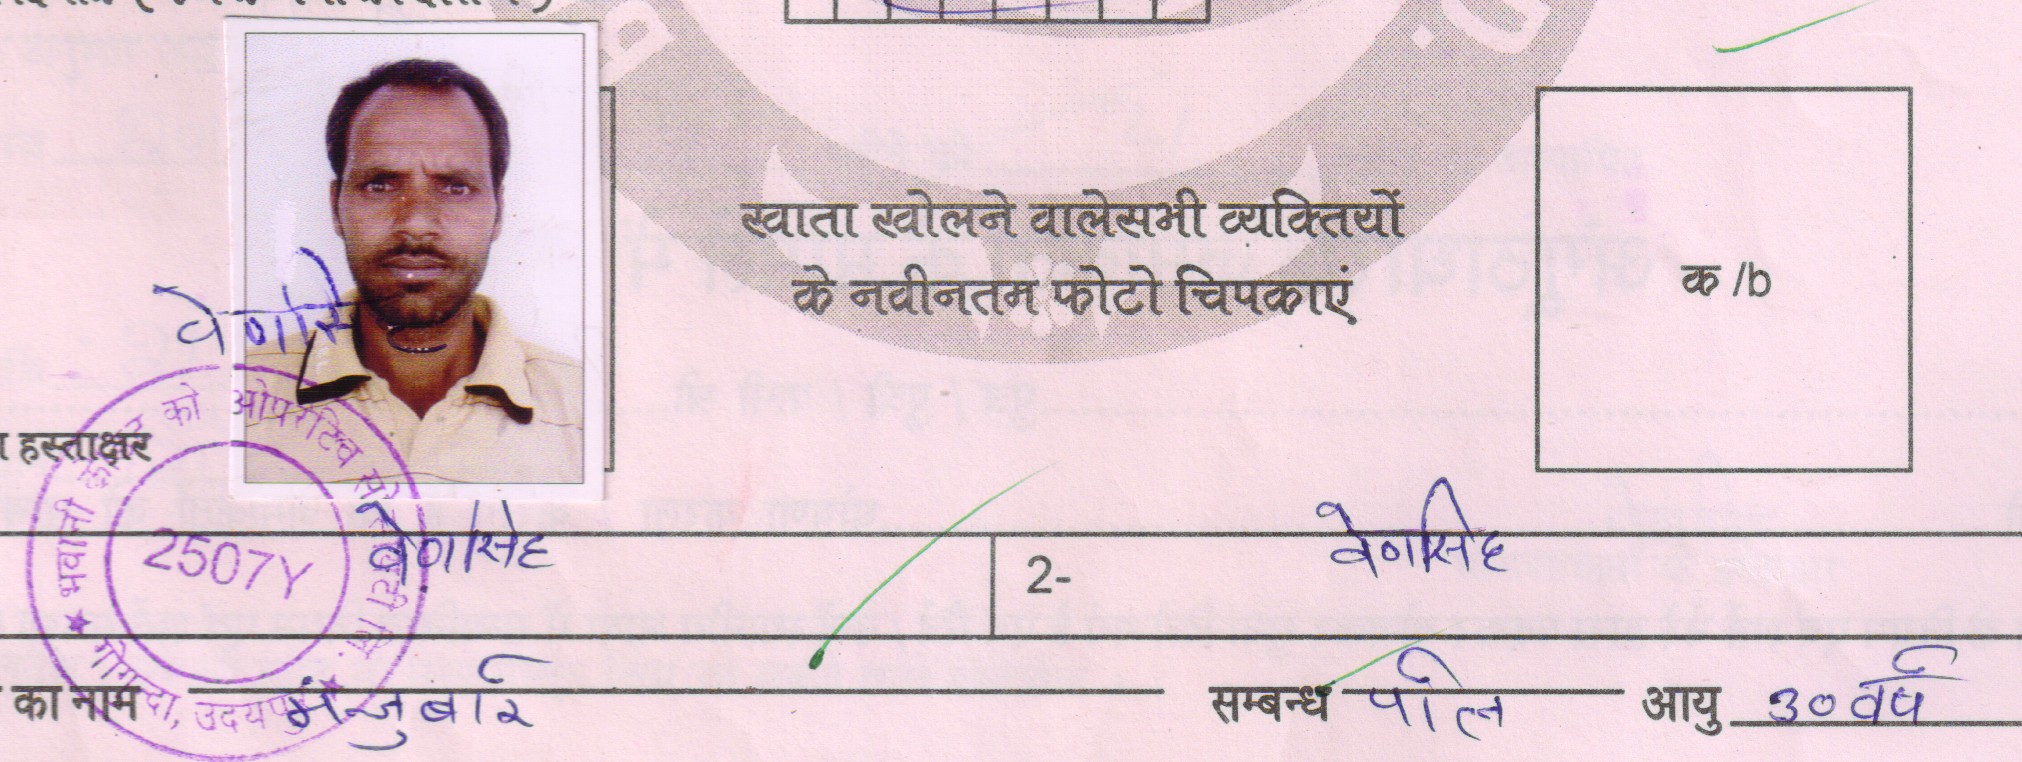 खाता खोलने वाले सभी व्यक्तियों
के नवीनतम फोटो चिपकाएं
क /b
वेणसिंह
हस्ताक्षर
भवानी को ओपरेटिव सोसायटी लि. गोगुन्दा, उदयपुर
2507Y
वेणसिंह
2- वेणसिंह
का नाम मंजुबाई सम्बन्ध पत्नि आयु 30 वर्ष